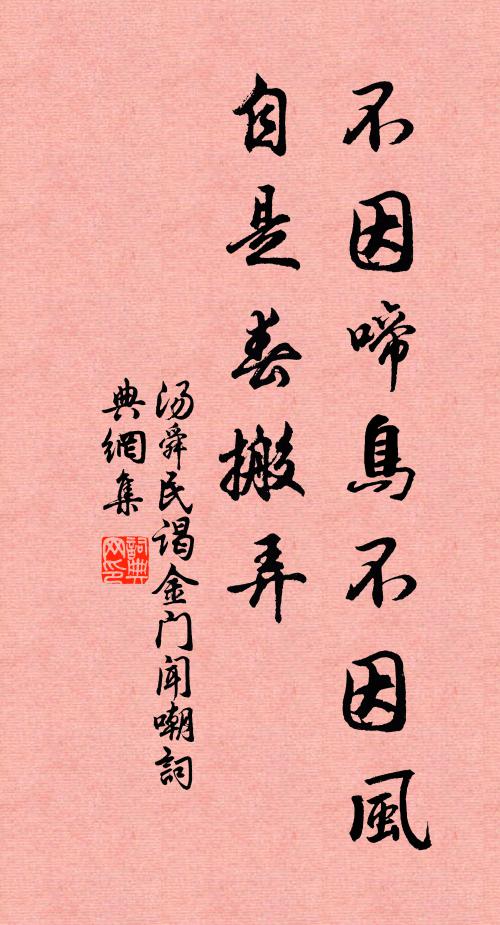 不因啼鳥不因風
自是春搬弄
汤舜民谒金门闻嘲詞
典網集
詞典
网印